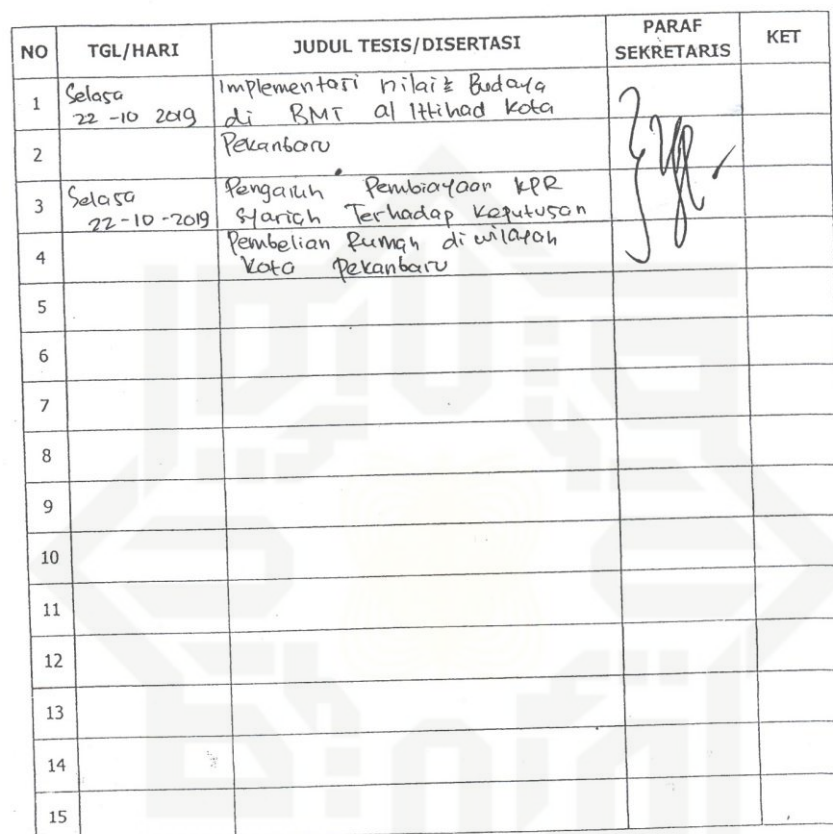 NO TGL/HARI JUDUL TESIS/DISERTASI PARAF SEKRETARIS KET
1 Selasa Implementasi nilai2 Budaya
22-10 2019 di BMT al Ittihad Kota
2 Pekanbaru
3 Selasa Pengaruh Pembiayaan KPR
22-10-2019 Syariah Terhadap Keputusan
4 Pembelian Rumah di wilayah
Kota Pekanbaru
5
6
7
8
9
10
11
12
13
14
15